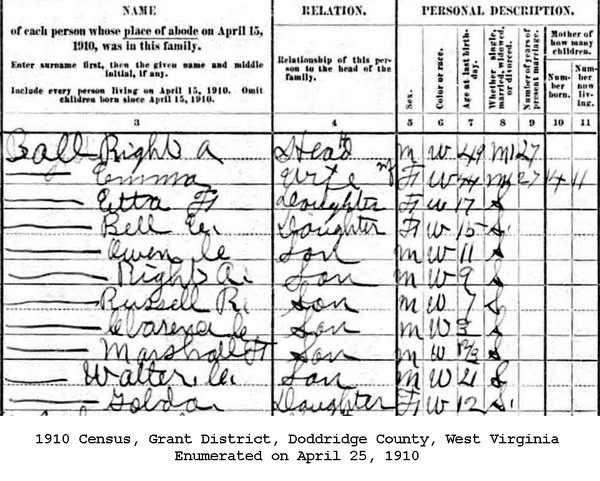 NAME
of each person whose place of abode on April 15, 1910, was in this family.
Enter surname first, then the given name and middle initial, if any.
Include every person living on April 15, 1910. Omit children born since April 15, 1910.
RELATION.
Relationship of this person to the head of the family.
PERSONAL DESCRIPTION.
Sex.
Color or race.
Age at last birthday.
Whether single, married, widowed, or divorced.
Number of years of present marriage.
Mother of how many children.
Number born.
Number now living.
3 4 5 6 7 8 9 10 11
Ball Right A Head M W 49 M1 27
Emma Wife F W 44 M1 27 14 11
Etta F Daughter F W 17 S
Bell E. Daughter F W 15 S
Owen C Son M W 11 S
Right A. Son M W 9 S
Russell R. Son M W 7 S
Clarence C Son M W 3 S
Marshall F Son M W S
Walter C. Son M W 21 S
Golda Daughter F W 12 S
1910 Census, Grant District, Doddridge County, West Virginia
Enumerated on April 25, 1910